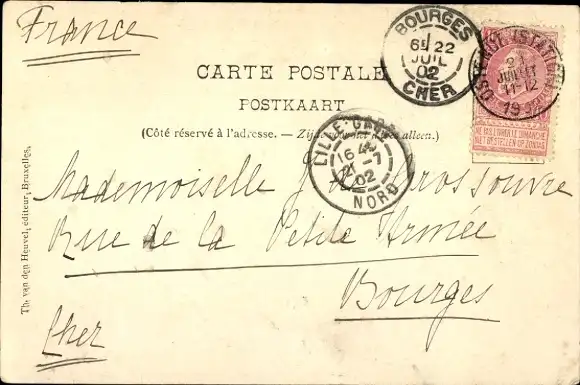 France
BOURGES
6E 22
JUIL
02
CHER
OSTENDE (STATION)
21
JUILLET
11-12
19
CARTE POSTALE
POSTKAART
(Côté réservé à l'adresse. — alleen.)
NE PAS LIVRER LE DIMANCHE
NIET BESTELLEN OP ZONDAG
LILLE-GARE
16
21-7
02
NORD
Mademoiselle Grossouvre
Rue de la Petite Armée
Bourges
Cher
Th. van den Heuvel, éditeur, Bruxelles.